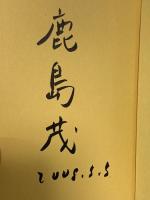 鹿島茂
2008.5.5